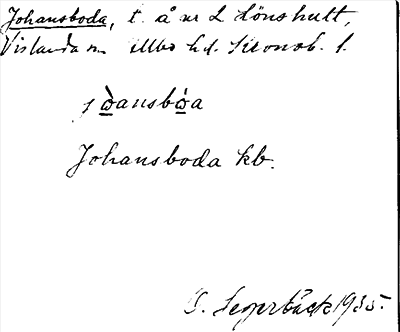 Johansboda, t. å nr 2 Lönshult,
Vislanda sn Allbo hd. Kronob. l.
jòansbòa
Johansboda kb.
Segerbäck 1935.